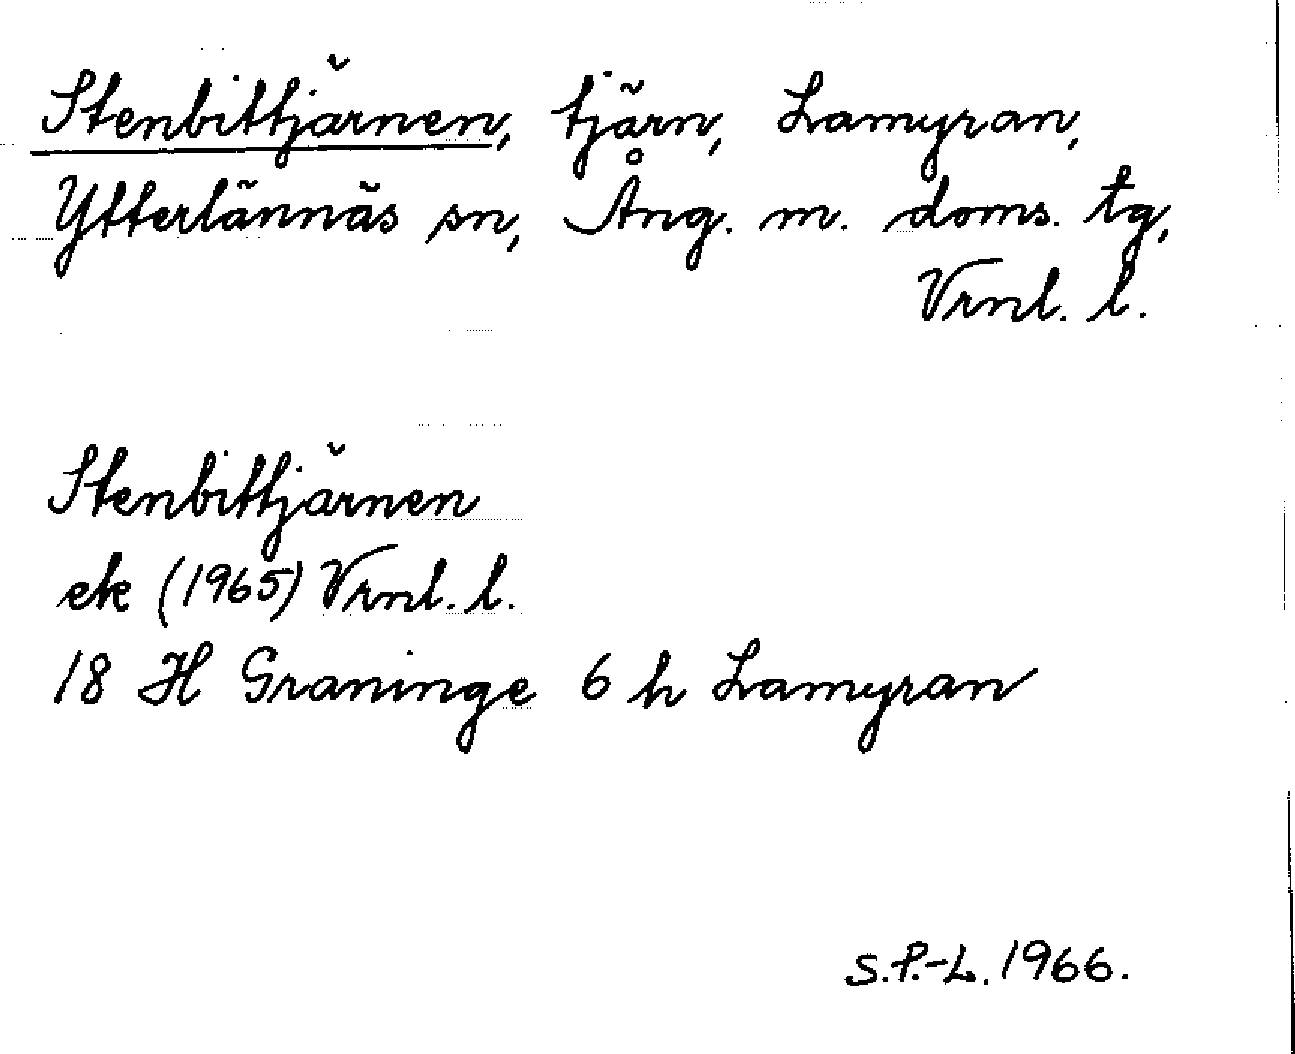 Stenbittjärnen, tjärn, Lamyran,
Ytterlännäs sn, Ång. m. doms. tg,
Vrnl. l.
Stenbittjärnen
ek (1965) Vrnl. l.
18 H Graninge 6 h Lamyran
S.P.-L. 1966.